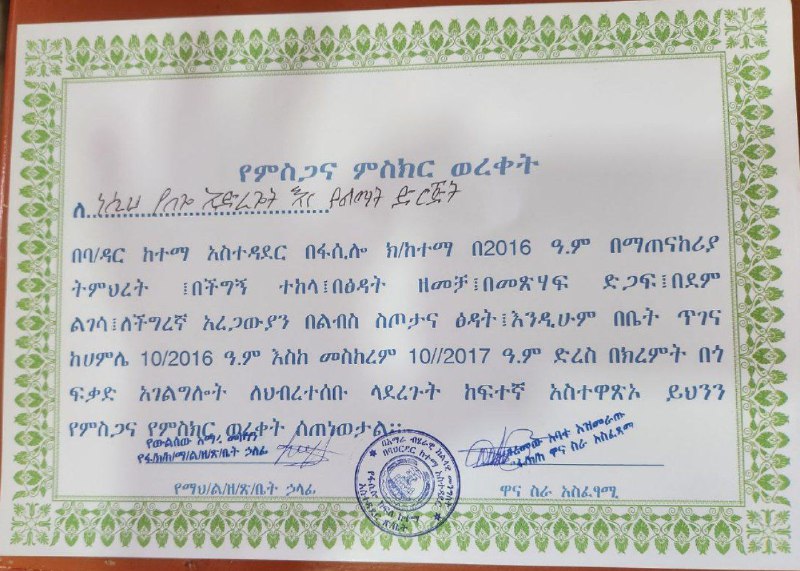 የምስጋና ምስክር ወረቀት
ለ የበጎ አድራጎት እና የልማት ድርጅት
በባ/ዳር ከተማ አስተዳደር በፋሲሎ ክ/ከተማ በ2016 ዓ.ም በማጠናከሪያ
ትምህረት ፤በችግኝ ተከላ፤በፅዳት ዘመቻ፤በመጽሃፍ ድጋፍ፤በደም
ልገሳ፤ለችግረኛ አረጋውያን በልብስ ስጦታና ፅዳት፤እንዲሁም በቤት ጥገና
ከሀምሌ 10/2016 ዓ.ም እስከ መስከረም 10//2017 ዓ.ም ድረስ በክረምት በጎ
ፍቃድ አገልግሎት ለህብረተሰቡ ላደረጉት ከፍተኛ አስተዋጽኦ ይህንን
የምስጋና የምስክር ወረቀት ሰጠነወታል፡፡
የውልሰው አማረ
የፋ/ክ/ከ/ማ/ል/ዘ/ጽ/ቤት ኃላፊ
አባተ አዝመራው
ዋና ስራ አስፈጻሚ
የማህ/ል/ዘ/ጽ/ቤት ኃላፊ
ዋና ስራ አስፈፃሚ